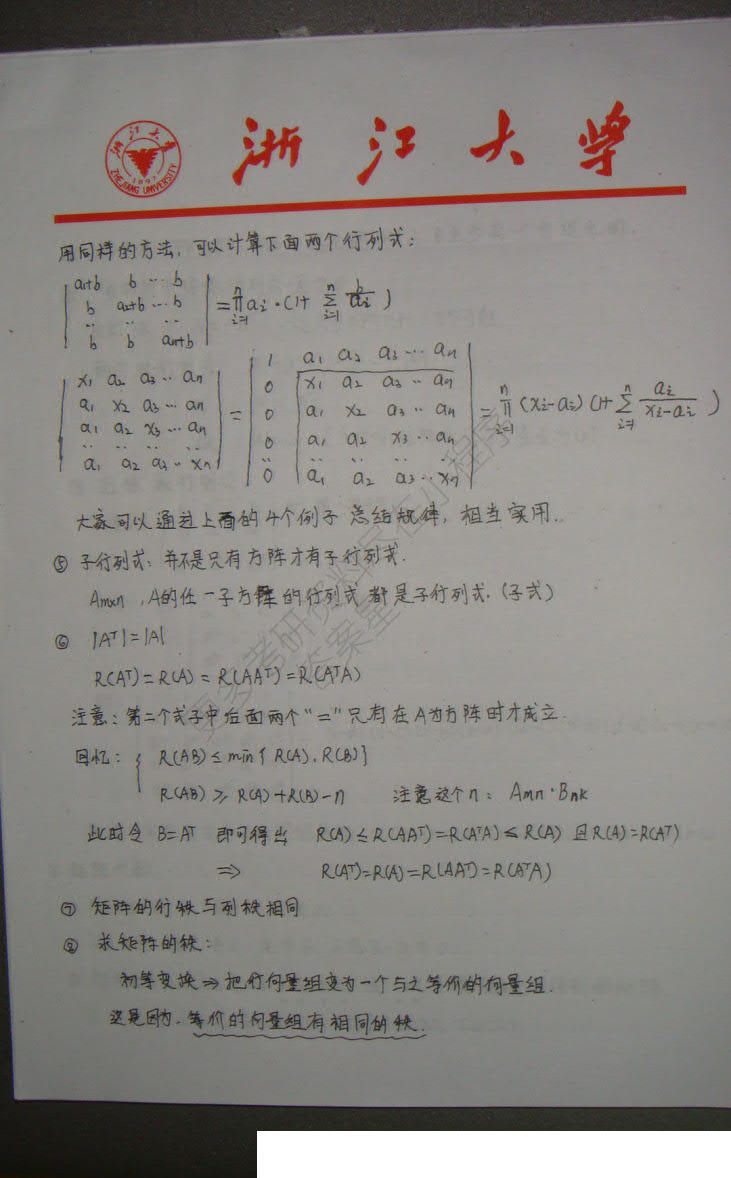 浙江大学
浙江大学
ZHEJIANG UNIVERSITY
1897
用同样的方法,可以计算下面两个行列式:
| a₁+b b … b |
| b a₂+b … b |
| … … … |
| b b aₙ+b | = ∏ᵢ₌₁ⁿ aᵢ · (1+ ∑ᵢ₌₁ⁿ b/aᵢ )
| x₁ a₂ a₃ … aₙ | | 1 a₁ a₂ a₃ … aₙ |
| a₁ x₂ a₃ … aₙ | | 0 x₁ a₂ a₃ … aₙ |
| a₁ a₂ x₃ … aₙ | = | 0 a₁ x₂ a₃ … aₙ | = ∏ᵢ₌₁ⁿ (xᵢ-aᵢ) (1+ ∑ᵢ₌₁ⁿ aᵢ/(xᵢ-aᵢ) )
| … … … … | | 0 a₁ a₂ x₃ … aₙ |
| a₁ a₂ a₃ … xₙ | | … … … … … |
| 0 a₁ a₂ a₃ … xₙ |
大家可以通过上面的4个例子总结规律,相当实用..
⑤ 子行列式:并不是只有方阵才有子行列式.
Am×n ,A的任一子方阵的行列式都是子行列式.(子式)
⑥ |Aᵀ|=|A|
R(Aᵀ)=R(A)=R(AAᵀ)=R(AᵀA)
注意:第二个式子中后面两个"="只有在A为方阵时才成立
回忆:{ R(AB)≤min{R(A),R(B)}
R(AB)≥R(A)+R(B)-n 注意这个n: Amn·Bnk
此时令 B=Aᵀ 即可得出 R(A)≤R(AAᵀ)=R(AᵀA)≤R(A) 且R(A)=R(Aᵀ)
⇒ R(Aᵀ)=R(A)=R(AAᵀ)=R(AᵀA)
⑦ 矩阵的行秩与列秩相同
⑧ 求矩阵的秩:
初等变换⇒把行向量组变为一个与之等价的向量组.
这是因为,等价的向量组有相同的秩.
更多考研资料尽在小程序
答案星